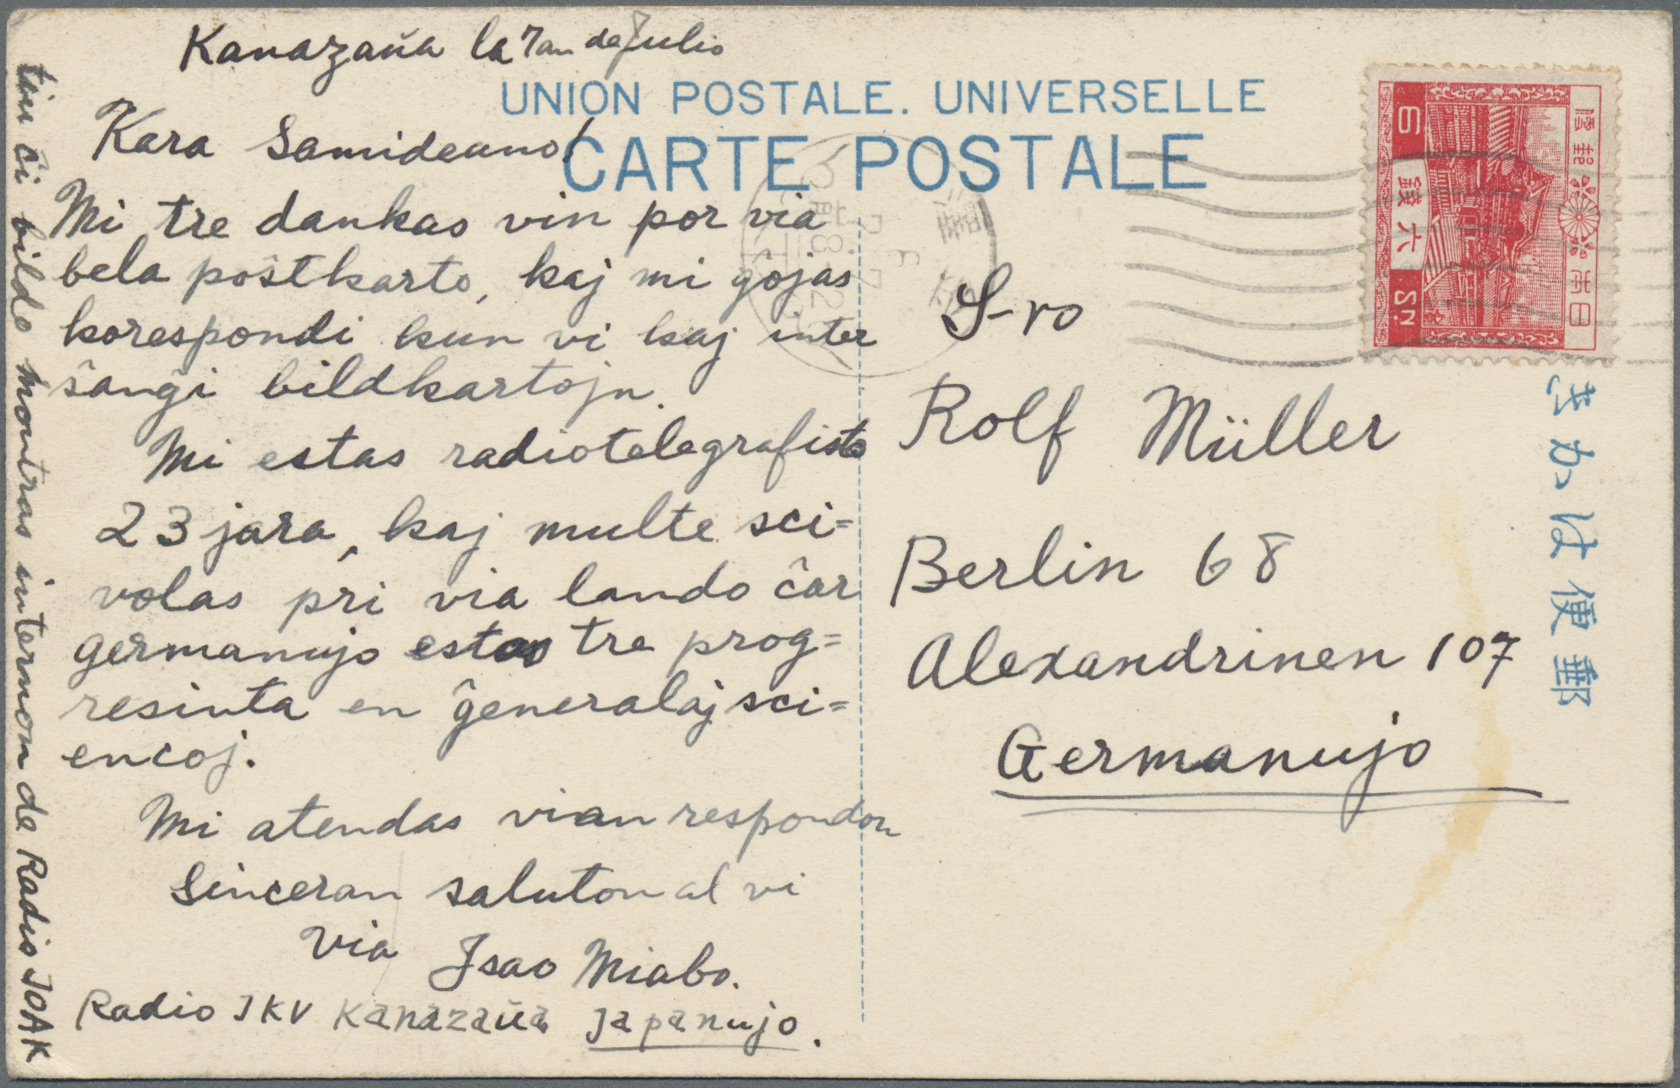 Kanazaŭa la 7an de Julio
UNION POSTALE. UNIVERSELLE
CARTE POSTALE
Kara Samideano!
Mi tre dankas vin por via
bela poŝtkarto, kaj mi ĝojas
korespondi kun vi kaj inter
ŝanĝi bildkartojn.
Mi estas radiotelegrafisto
23 jara, kaj multe sci=
volas pri via lando ĉar
germanujo estas tre prog=
resinta en ĝeneralaj sci=
encoj.
Mi atendas vian respondon
Sinceran saluton al vi
Via Isao Miabo.
Radio JKV Kanazaŭa Japanujo.
tiu ĉi bildo montras internon de Radio JOAK
S-ro
Rolf Müller
Berlin 68
Alexandrinen 107
Germanujo
郵便はかき
大日本帝国郵便
六銭
6 Sn.